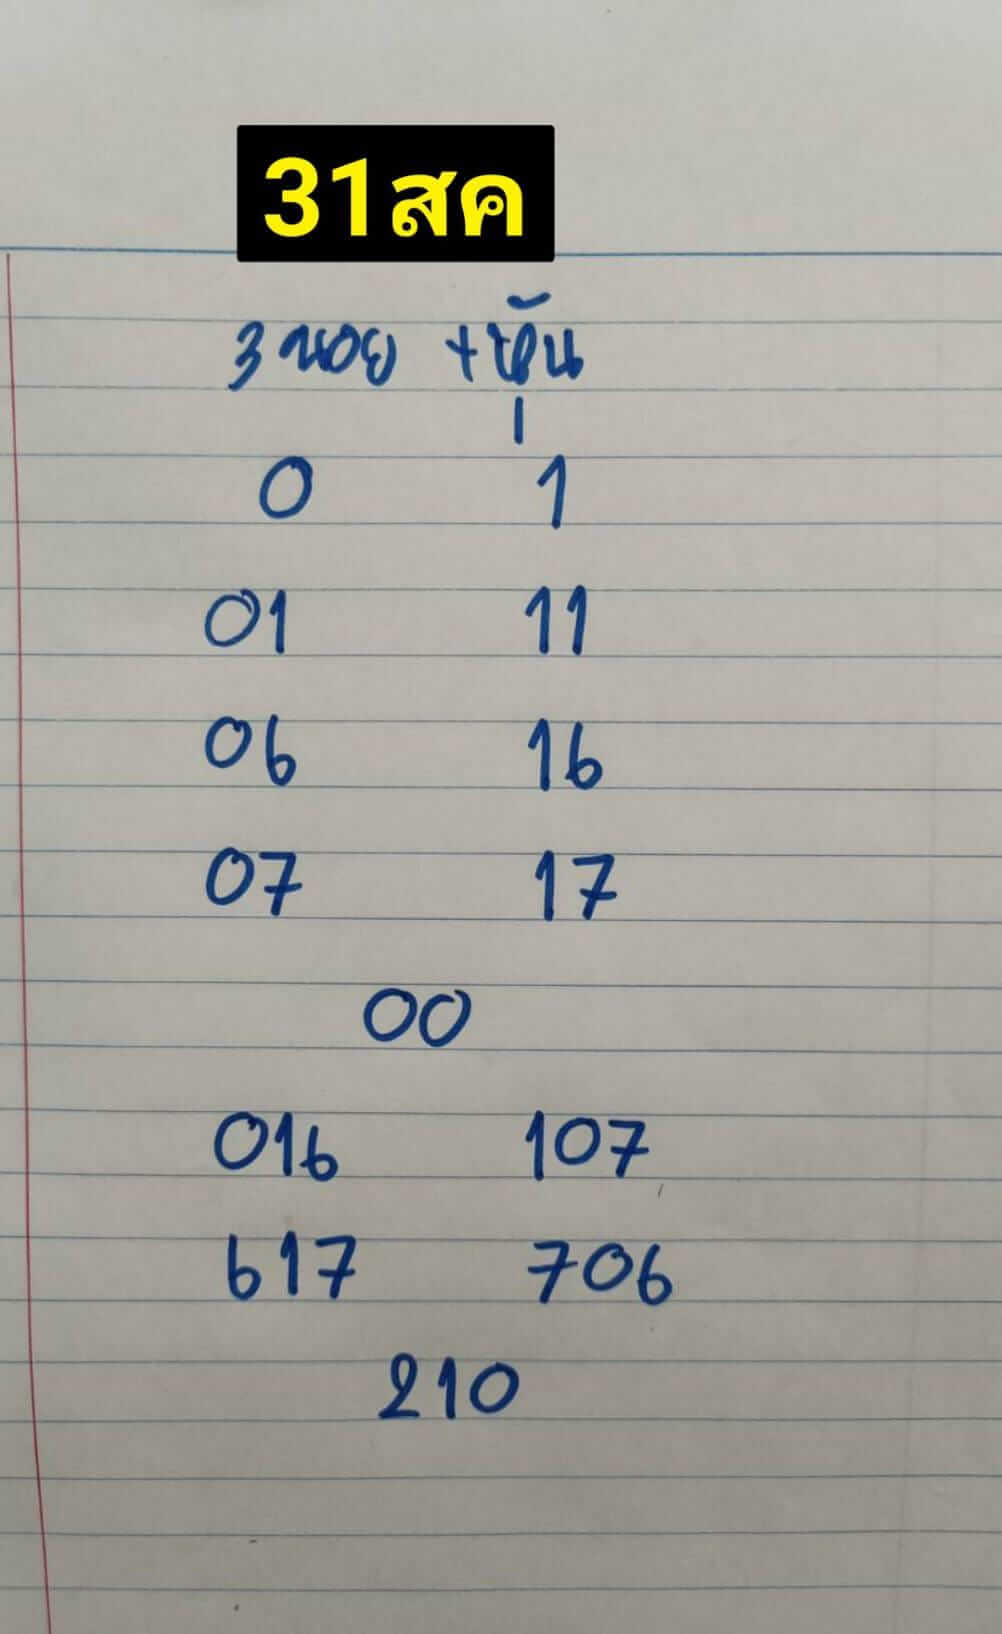 31สค
3 นอย + หุ้น
0 1
01 11
06 16
07 17
00
016 107
617 706
210